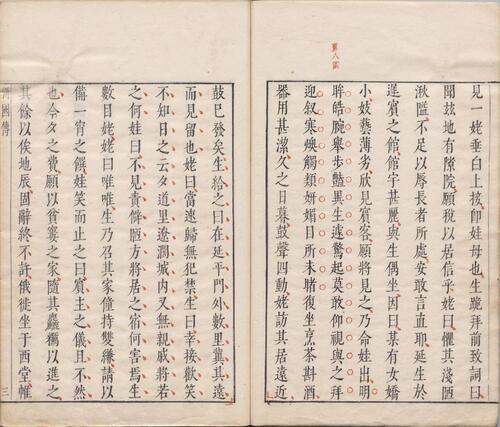 見一姥垂白上卽娃母也生跪拜前致詞曰
聞玆地有隙院願稅以居信乎姥曰懼其淺陋
湫隘不足以辱長者所處安敢言直耶延生於
遲賓之館館宇甚麗與生偶坐因曰某有女嬌
小技藝薄劣欣見賓客願將見之乃命娃出明
眸皓腕舉步豔異生遽驚起莫敢仰視與之拜
迎叙寒燠觸類妍媚目所未睹復坐烹茶斟酒
器用甚潔久之日暮鼓聲四動姥訪其居遠近
鼓已發矣生紿之曰在延平門外數里冀其遠
而見留也姥曰當速歸無犯禁生曰幸接歡笑
不知日之云夕道里遼濶城内又無親戚將若
之何娃曰不見責僻陋方將居之宿何害焉生
數目姥姥曰唯唯生乃召其家僮持雙縑請以
備一宵之饌娃笑而止之曰賓主之儀且不然
也今夕之費願以貧窶之家隨其麤糲以進之
其餘以俟他辰固辭終不許俄徙坐于西堂帷
汧國傳
三